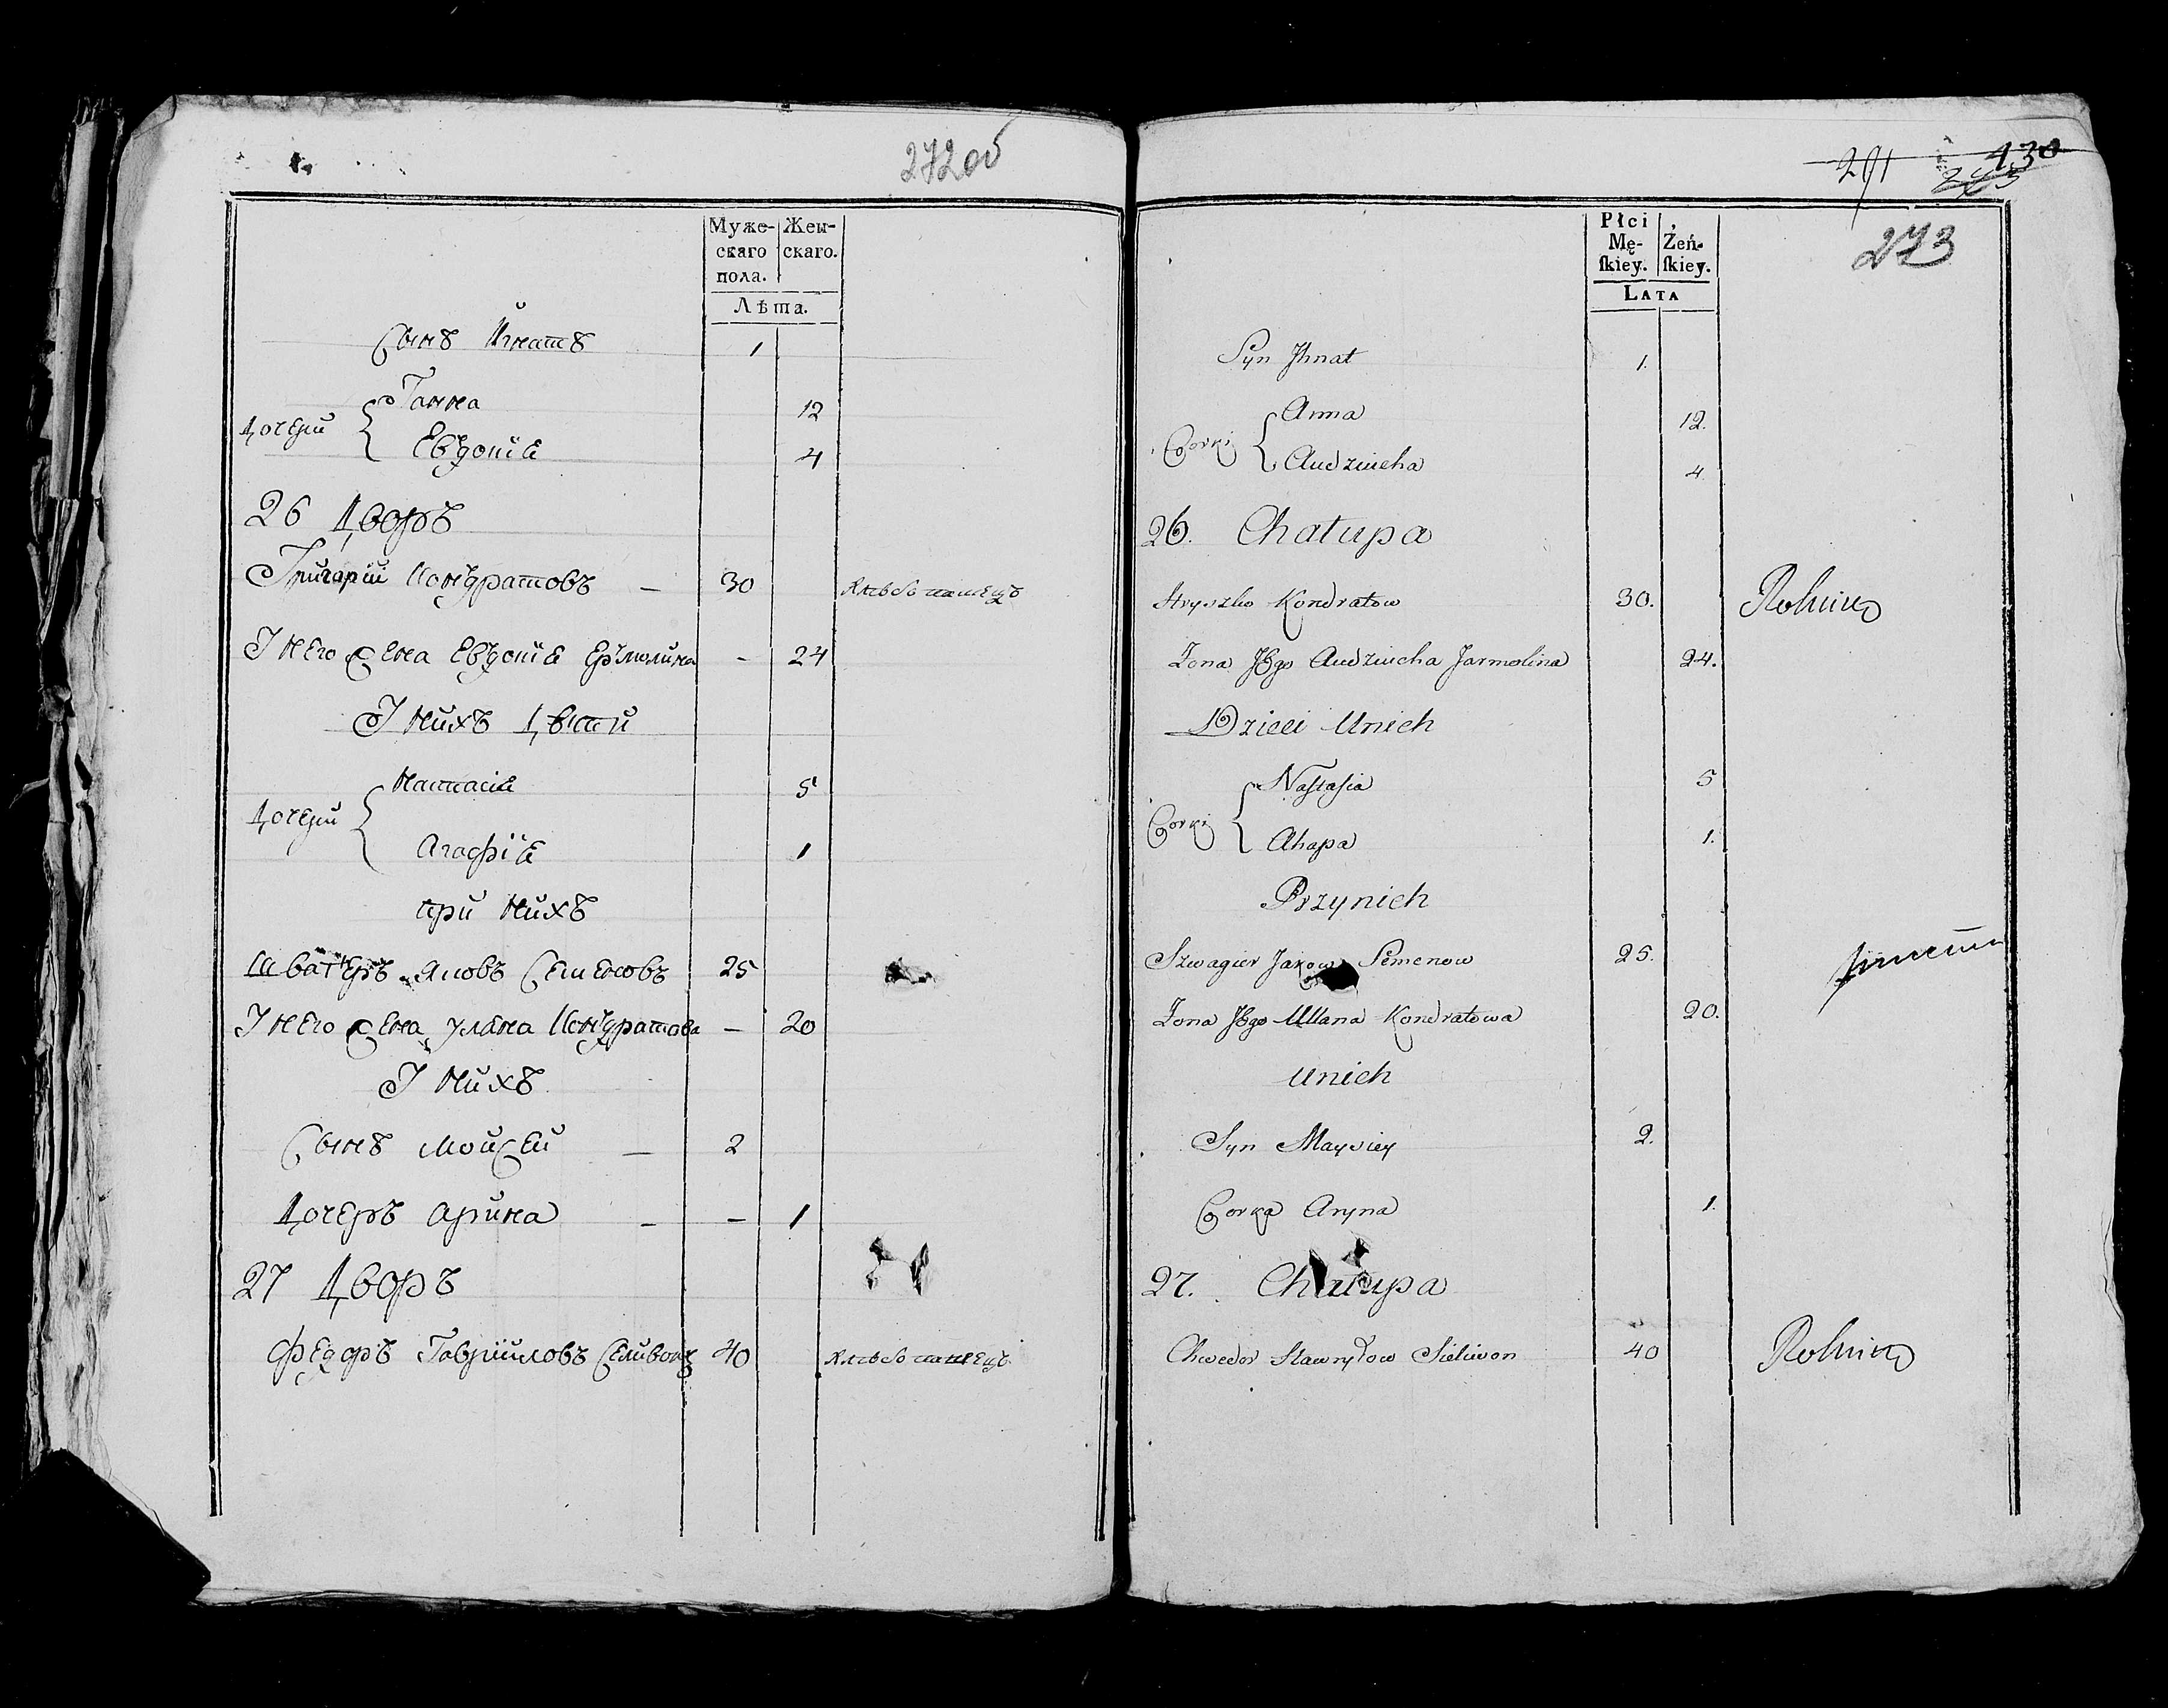 272об
Муже-
скаго
пола.
Жен-
скаго.
Лѣта.
Сынъ Игнатъ 1
Дочери
Ганна 12
Евдокія 4
26 Дворъ
Григорій Кондратовъ — 30 хлебопашецъ
У него жена Евдокія Ермолина - 24
У нихъ Дѣти
Дочери
Настасія 5
Агафія 1
при нихъ
Шватеръ Яковъ Семеновъ 25
У него жена Уляна Кондратова — 20
У нихъ
Сынъ Мойсей — 2
Дочеръ Арина — — 1
27 Дворъ
Федоръ Гаврииловъ Селивон 40 хлебопашецъ
291 430
273
Płci
Mę-
ſkiey.
Żeń-
ſkiey.
Lata
Syn Jhnat 1.
Corki
Anna 12.
Audziucha 4
26. Chałupa
Hryszko Kondratow 30. Rolnik
Zona Jego Audziucha Jarmolina 24.
Dzieci Unich
Corki
Naſtaſia 5
Ahapa 1.
Przynich
Szwagier Jakow Semenow 25.
Zona Jego Ullana Kondratowa 20.
Unich
Syn Maysiey 2.
Corka Aryna 1.
27. Chałupa
Chwedor Hawryłow Sieliwon 40 Rolnik